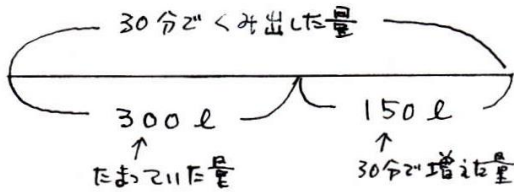 30分でくみ出した量
300ℓ 150ℓ
↑ ↑
たまっていた量 30分で増えた量